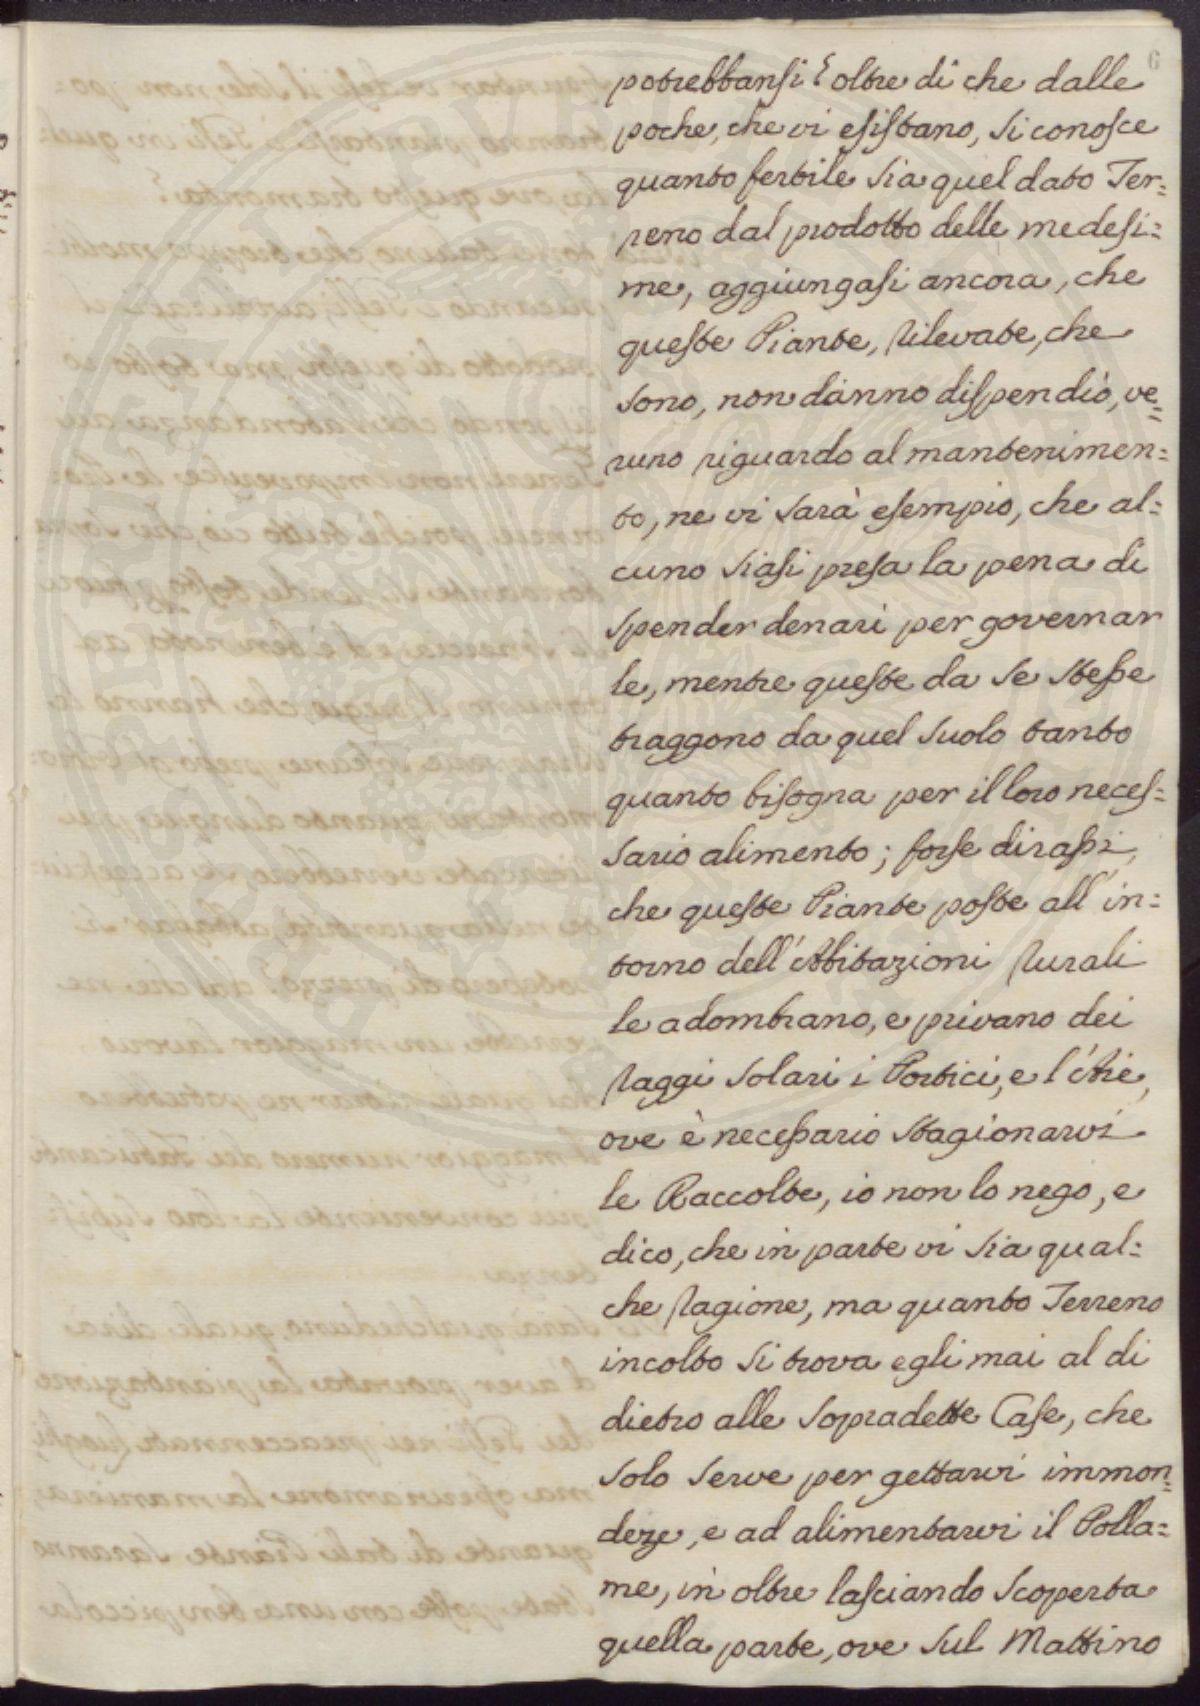 6
potrebbansi? oltre di che dalle
poche, che vi esistano, si conosce
quanto fertile sia quel dato Ter=
reno dal prodotto delle medesi=
me, aggiungasi ancora, che
queste Piante, rilevate, che
sono, non danno dispendio, ve=
runo riguardo al mantenimen=
to, ne vi sarà esempio, che al=
cuno siasi presa la pena di
spender denari per governar
le, mentre queste da se stesse
traggono da quel suolo tanto
quanto bisogna per il loro neces=
sario alimento; forse dirassi,
che queste Piante poste all' in=
torno dell' Abitazioni rurali
le adombrano, e privano dei
raggi solari i Portici, e l'Aie,
ove è necessario stagionarvi
le Raccolte, io non lo nego, e
dico, che in parte vi sia qual=
che ragione, ma quanto Terreno
incolto si trova egli mai al di
dietro alle sopradette Case, che
solo serve per gettarvi immon=
deze, e ad alimentarvi il Polla=
me, in oltre lasciando scoperta
quella parte, ove sul Mattino